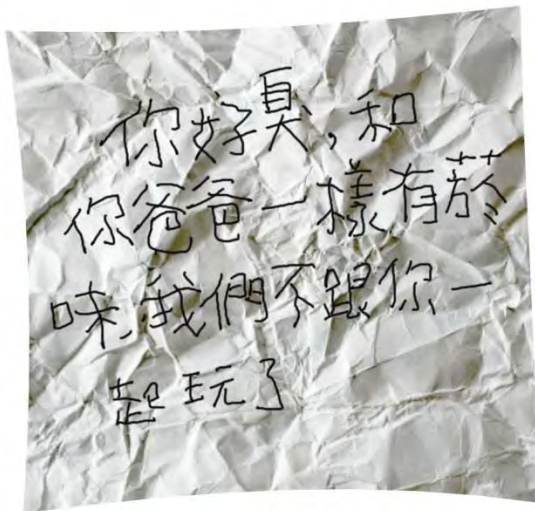 你好臭,和
你爸爸一樣有菸
味,我們不跟你一
起玩了